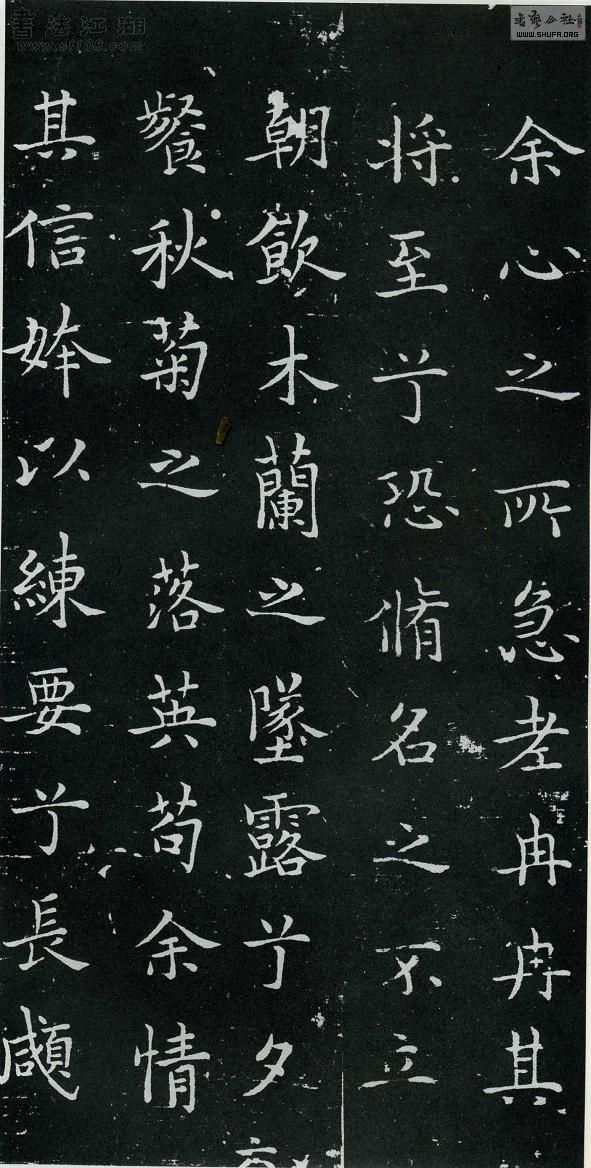 余心之所急老冉冉其
将至兮恐脩名之不立
朝飲木蘭之墜露兮夕
餐秋菊之落英苟余情
其信姱以練要兮長顑
書法江湖
www.sf108.com
WWW.SHUFA.ORG